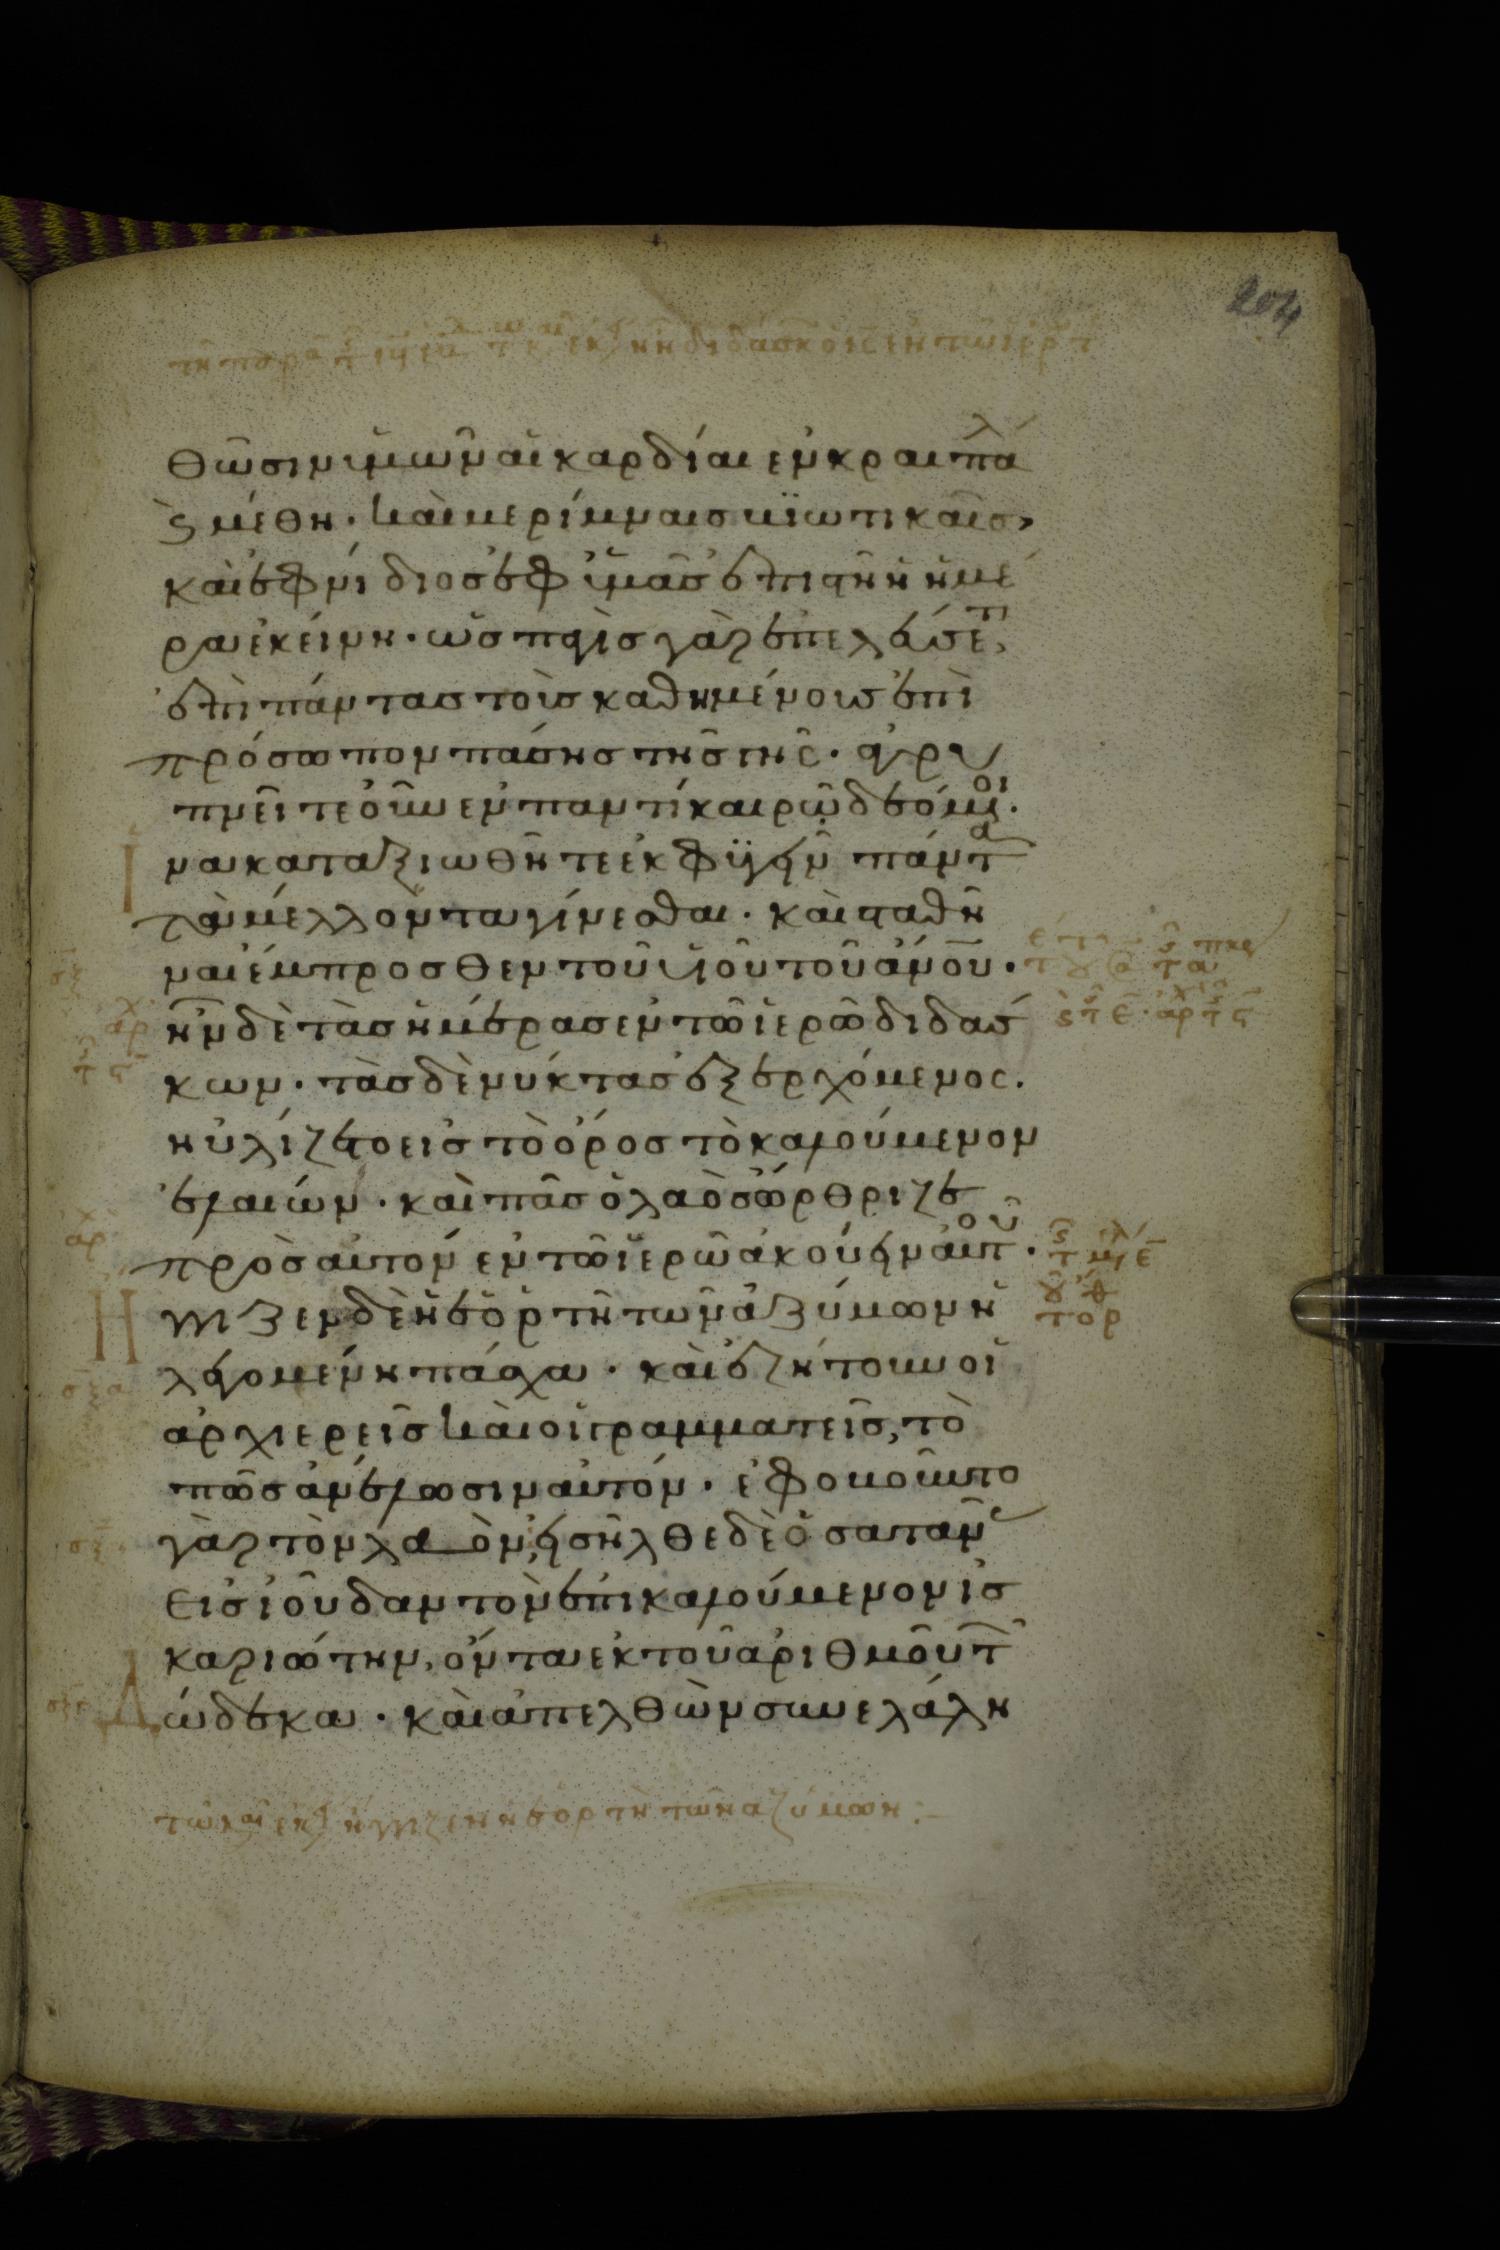 204
θῶσιν ὑμῶν αἱ καρδίαι ἐν κραιπάλ
ϛ μέθη· καὶ μερίμναισ βιωτικαῖσ,
καὶ ἐφνίδιοσ ἐφ ὑμᾶσ ἐπιστῆ ἡ ἡμέ
ρα ἐκείνη· ὡσ παγὶσ γὰρ ἐπελεύσετ,
ἐπὶ πάντασ τοὺσ καθημένουσ ἐπὶ
πρόσωπον πάσησ τῆσ γῆσ· ἀγρυ
πνεῖτε οὖν ἐν παντὶ καιρῶ δεόμενοι·
ἵνα καταξιωθῆτε ἐκφυγεῖν πάντα
τὰ μέλλοντα γίνεσθαι· καὶ σταθῆ
ναι ἔμπροσθεν τοῦ υἱοῦ τοῦ ἀνου·
ἦν δὲ τὰσ ἡμέρασ ἐν τῶ ἱερῶ διδάσ
κων· τὰσ δὲ νύκτασ ἐξερχόμενοσ.
ηὐλίζετο εἰσ τὸ ὄροσ τὸ καλούμενον
ἐλαιών· καὶ πᾶσ ὁ λαὸσ ὤρθριζε
πρὸσ αὐτὸν ἐν τῶ ἱερῶ ἀκούειν αὐτοῦ·
Ἤγγιζεν δὲ ἡ ἑορτὴ τῶν ἀζύμων ἡ
λεγομένη πάσχα· καὶ ἐζήτουν οἱ
ἀρχιερεῖσ καὶ οἱ γραμματεῖσ, τὸ
πῶσ ἀνέλωσιν αὐτόν· ἐφοβοῦντο
γὰρ τὸν λαὸν, εἰσῆλθε δὲ ὁ σατανᾶσ
εἰσ ἰούδαν τὸν ἐπικαλούμενον ἰσ
καριώτην, ὄντα ἐκ τοῦ ἀριθμοῦ τῶν
Δώδεκα· καὶ ἀπελθὼν συνελάλη
ἤγγιζεν ἡ ἑορτὴ τῶν ἀζύμων: